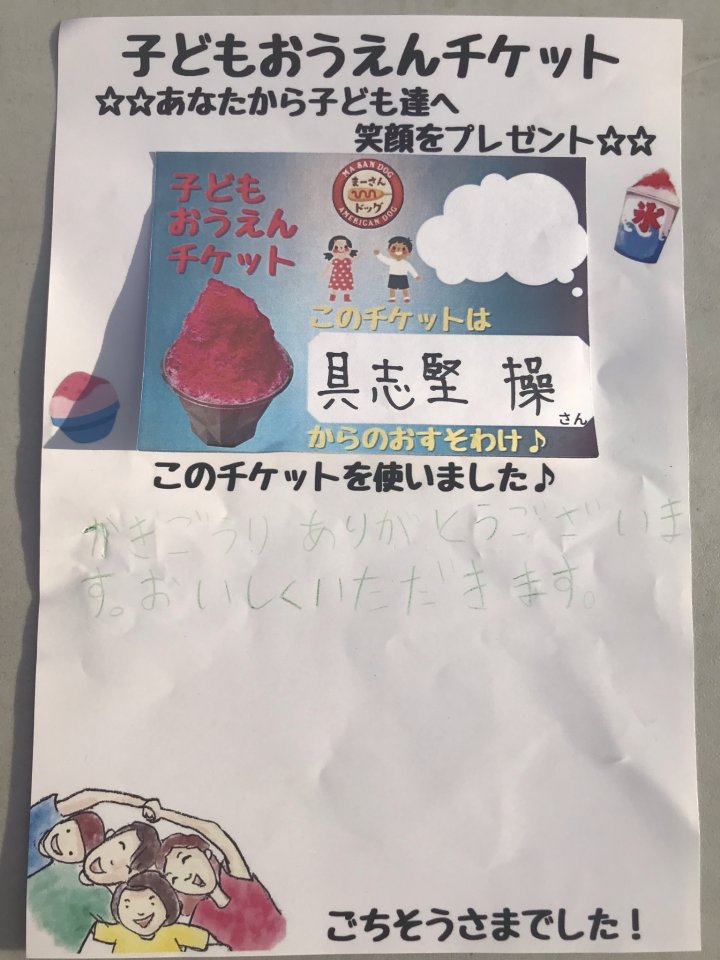 子どもおうえんチケット
☆☆あなたから子ども達へ
笑顔をプレゼント☆☆
子ども
おうえん
チケット
MA SAN DOG
まーさん
ドッグ
AMERICAN DOG
氷
このチケットは
具志堅 操
さん
からのおすそわけ♪
このチケットを使いました♪
かきごうり ありがとうございま
す。おいしくいただきます。
ごちそうさまでした!